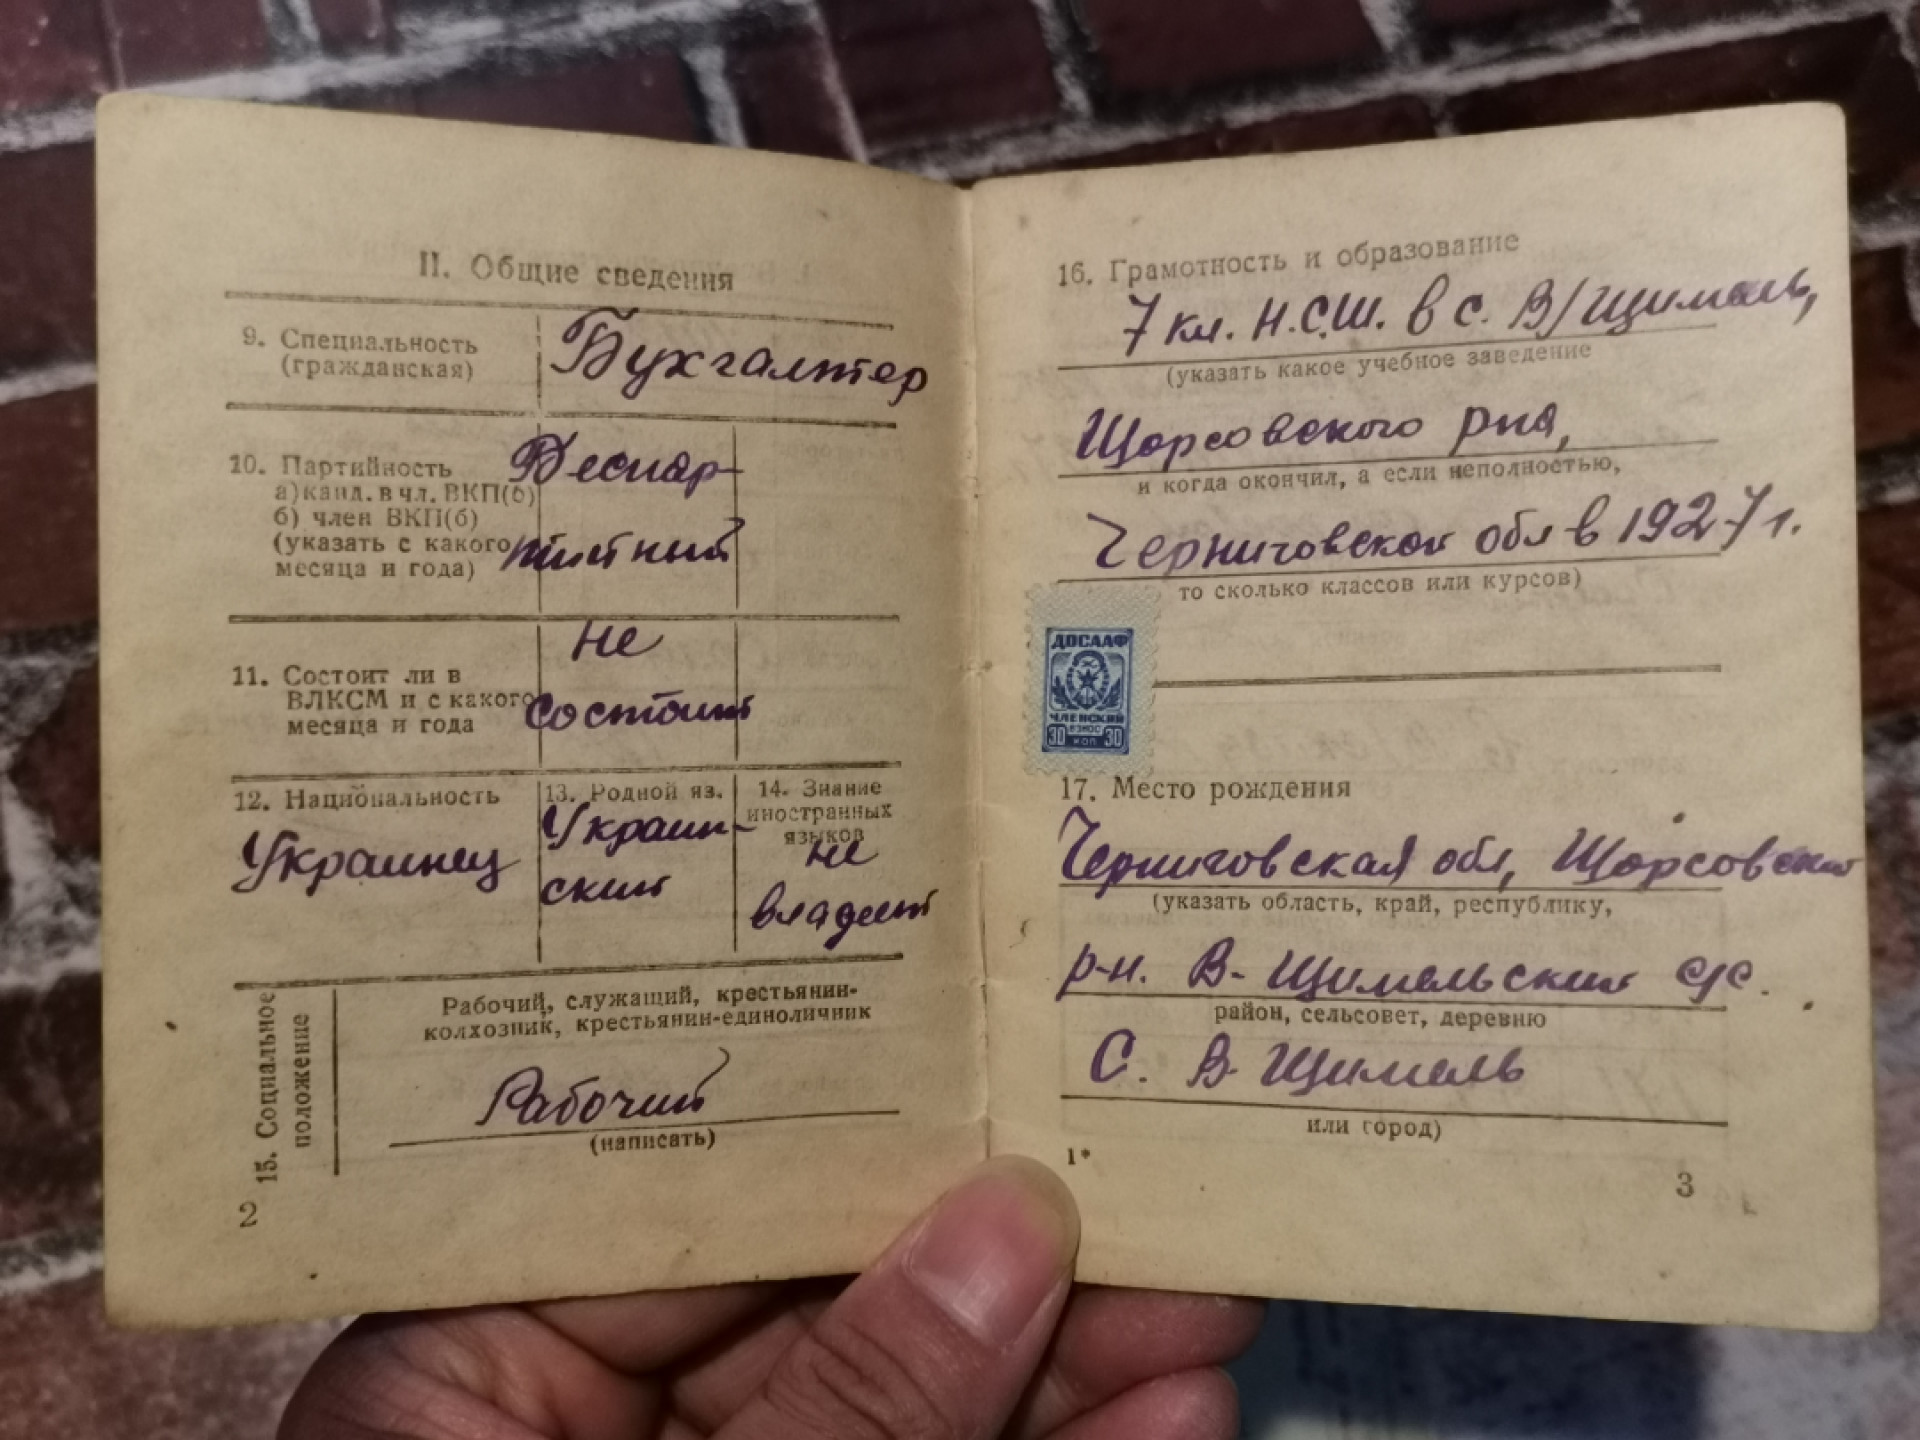 II. Общие сведения
9. Специальность
(гражданская)
Бухгалтер
10. Партийность
а) канд. в чл. ВКП(б)
б) член ВКП(б)
(указать с какого
месяца и года)
Беспар-
тийный
11. Состоит ли в
ВЛКСМ и с какого
месяца и года
Не
состоит
12. Национальность
Украинец
13. Родной яз.
Украин-
ский
14. Знание
иностранных
языков
не
владеет
15. Социальное
положение
Рабочий, служащий, крестьянин-
колхозник, крестьянин-единоличник
Рабочий
(написать)
2
16. Грамотность и образование
7 кл. Н.С.Ш. в с. В/Щимель,
(указать какое учебное заведение
Щорсовского рна,
и когда окончил, а если неполностью,
Черниговской обл в 1927 г.
то сколько классов или курсов)
ДОСААФ
ЧЛЕНСКИЙ
ВЗНОС
30 КОП 30
17. Место рождения
Черниговская обл, Щорсовский
(указать область, край, республику,
р-н. В-Щимельский с/с.
район, сельсовет, деревню
С. В-Щимель
или город)
1*
3